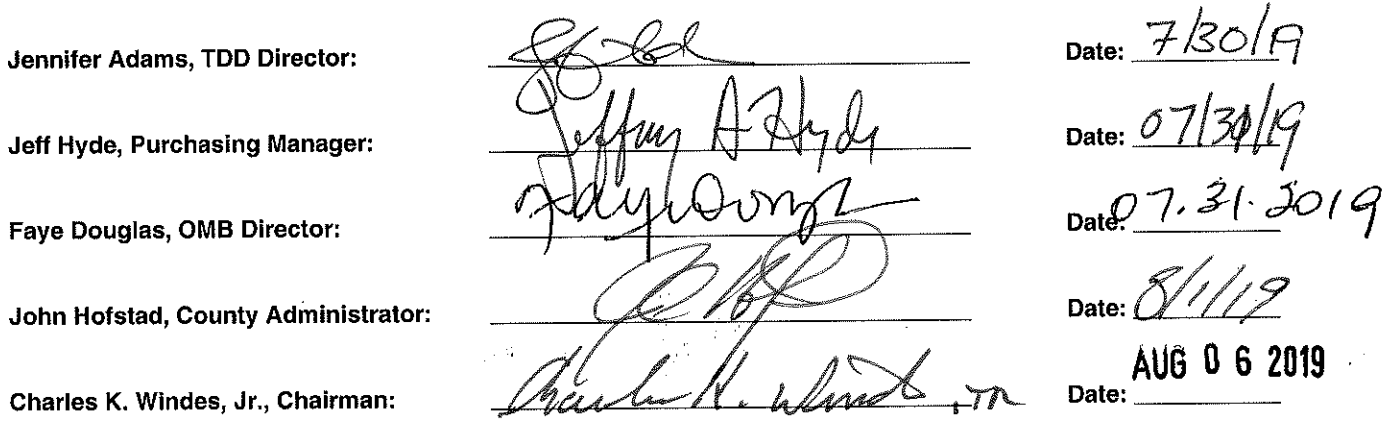 Jennifer Adams, TDD Director: Date: 7/30/19
Jeff Hyde, Purchasing Manager: Jeffrey A Hyde Date: 07/30/19
Faye Douglas, OMB Director: Faye Douglas Date: 07.31.2019
John Hofstad, County Administrator: Date: 8/1/19
Charles K. Windes, Jr., Chairman: Charles K. Windes, Jr Date: AUG 06 2019